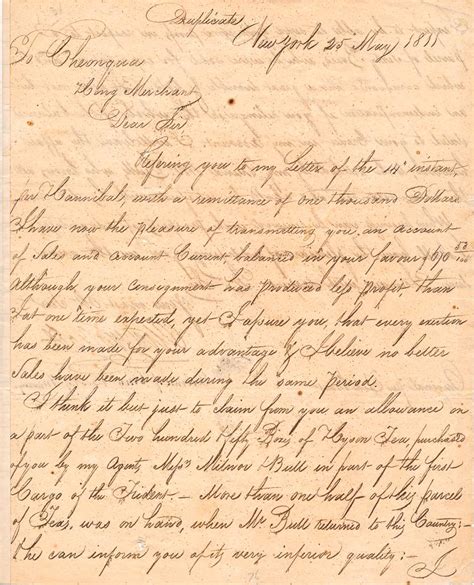 Duplicate
New York 25 May 1811
To Cheonqua
Hong Merchant
Dear Sir
Refering you to my Letter of the 14th instant,
pr Hannibal, with a remittance of one thousand Dollars
I have now the pleasure of transmitting you, an account
of Sales and account Current balanced in your favour
Although, your Consignment has produced less profit, than
at one time expected, yet I assure you, that every exertion
has been made for your advantage & I believe no better
Sales have been made during the same period.
I think it but just to claim from you an allowance on
a part of the Two hundred fifty Boxes of Hyson Tea purchased
of you by my Agents Messrs Milnor & Bull in part of the first
Cargo of the Trident. — More than one half of this parcel
of Teas, was on hand, when Mr Bull returned to this Country: —
& he can inform you of its very inferior quality: — I
76